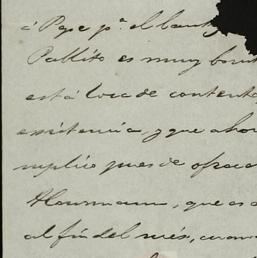 á Pepe pª el bautiz
Pablito es muy boni
está loca de contento
existencia, y que ahor
suplico pues de ofrece
Hausmann, que es a
al fin del més, cuan